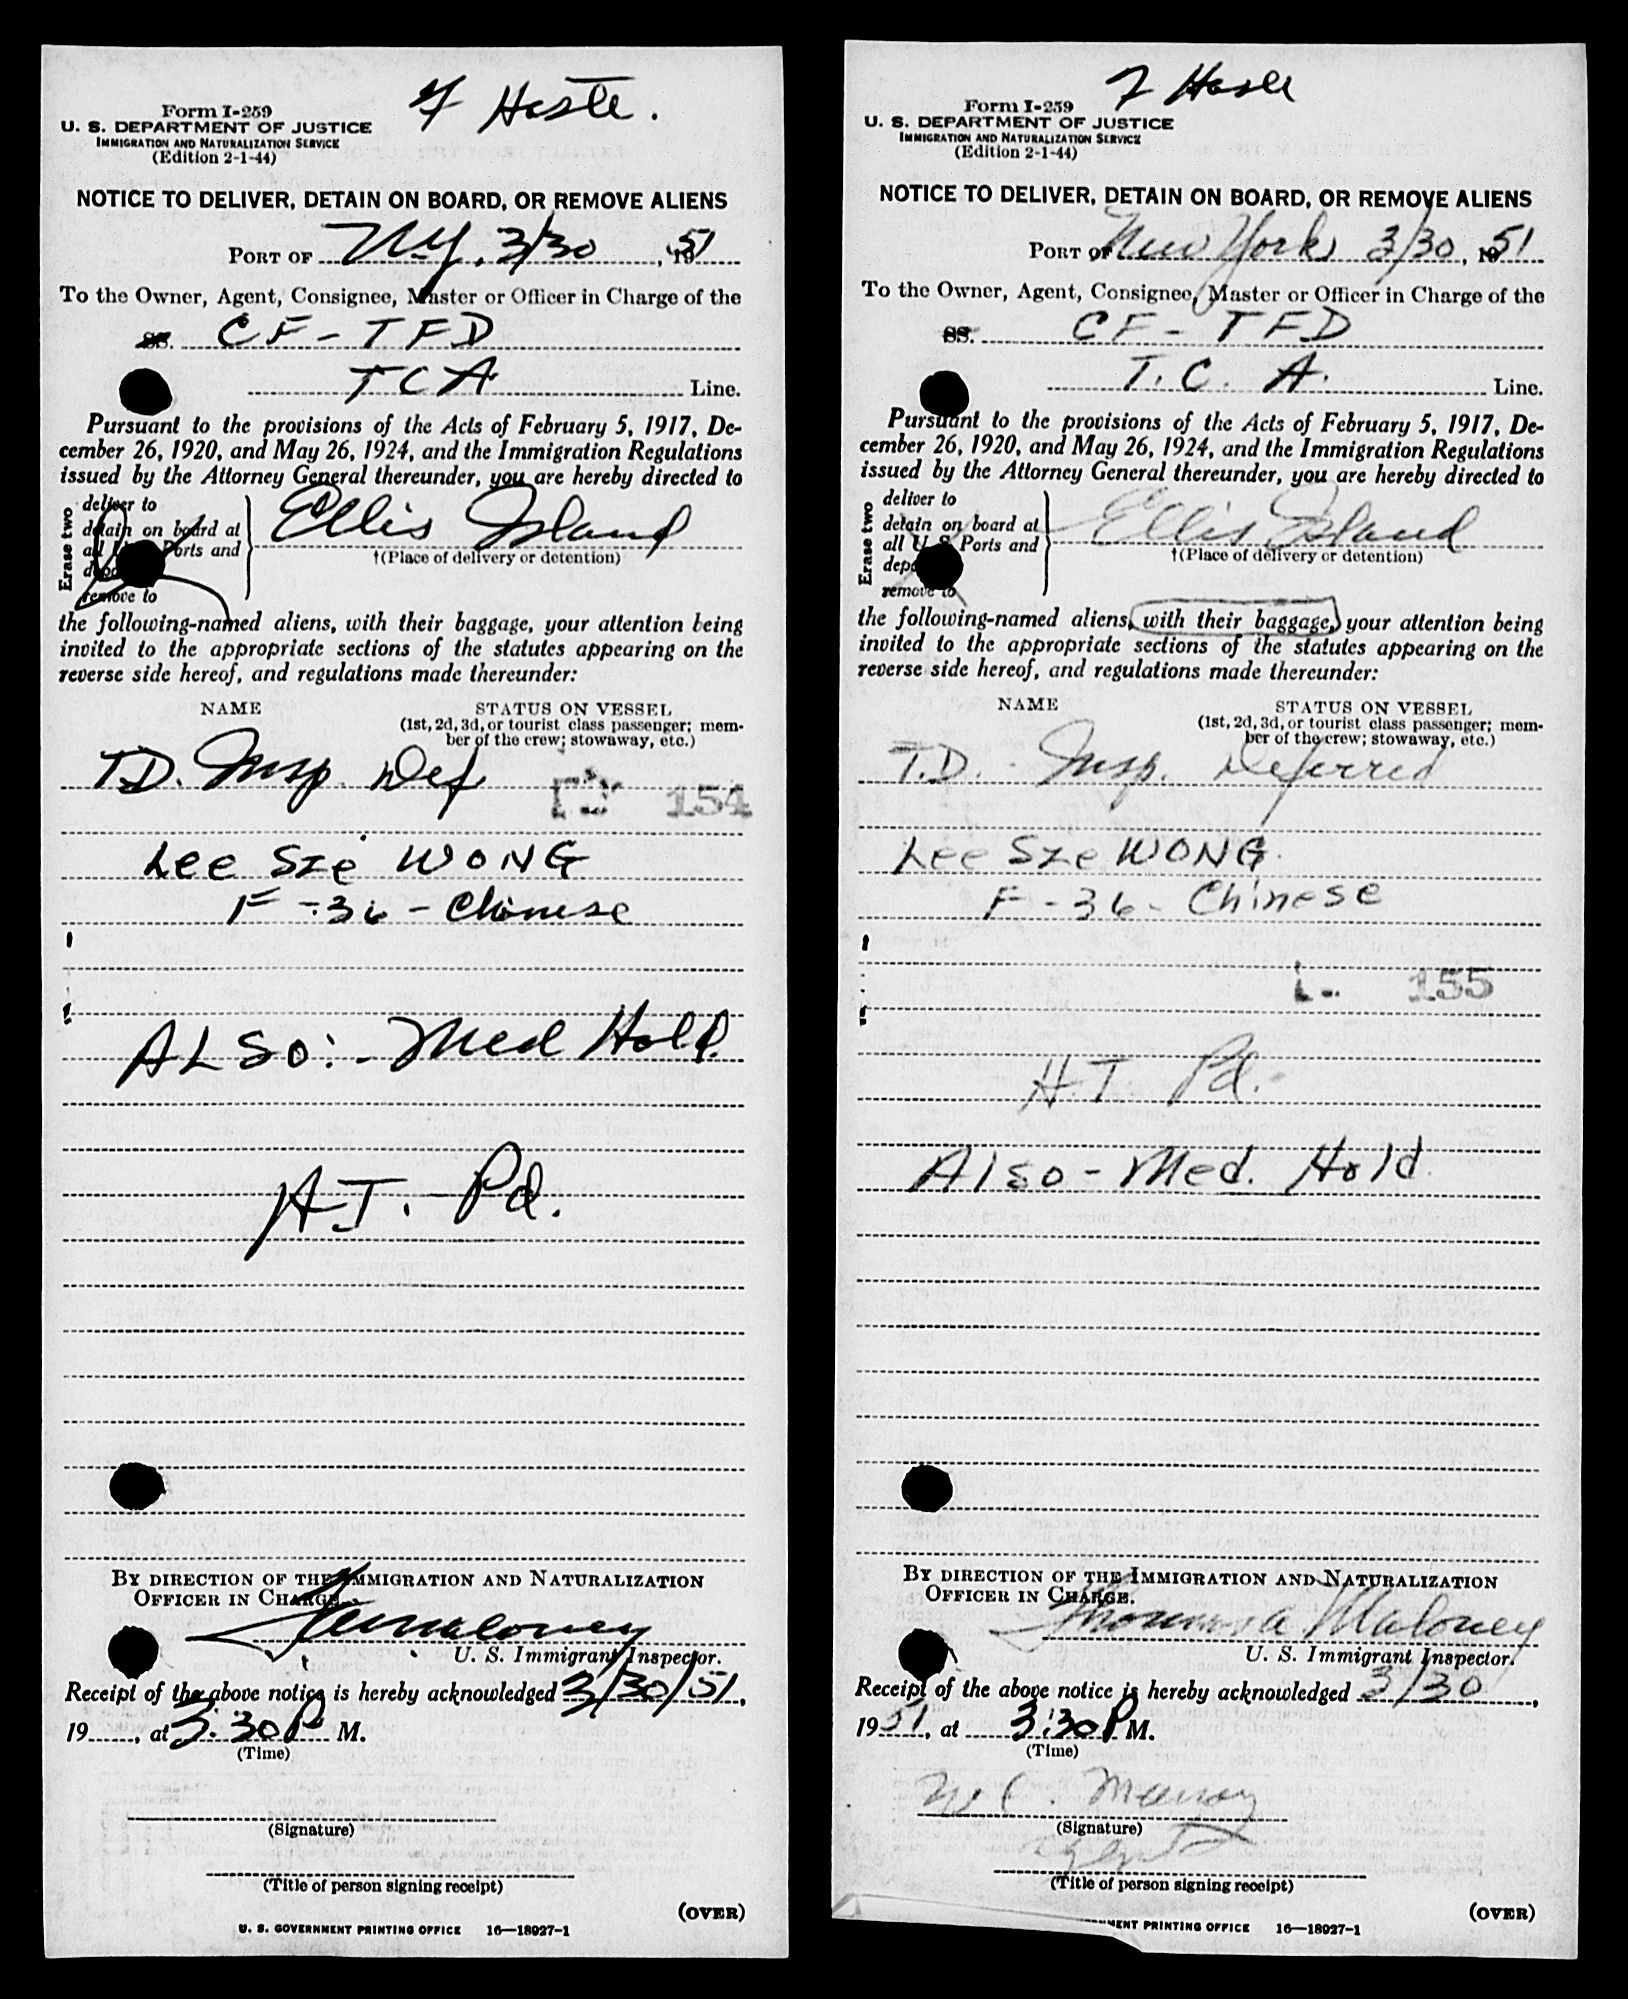 Form I-259
U. S. DEPARTMENT OF JUSTICE
IMMIGRATION AND NATURALIZATION SERVICE
(Edition 2-1-44)
NOTICE TO DELIVER, DETAIN ON BOARD, OR REMOVE ALIENS
PORT OF N.Y. 3/30, 1951
To the Owner, Agent, Consignee, Master or Officer in Charge of the
SS. CF-TFD
TCA Line.
Pursuant to the provisions of the Acts of February 5, 1917, De-
cember 26, 1920, and May 26, 1924, and the Immigration Regulations
issued by the Attorney General thereunder, you are hereby directed to
Erase two
deliver to
detain on board at
all U S Ports and
remove to
Ellis Island
†(Place of delivery or detention)
the following-named aliens, with their baggage, your attention being
invited to the appropriate sections of the statutes appearing on the
reverse side hereof, and regulations made thereunder:
NAME STATUS ON VESSEL
(1st, 2d, 3d, or tourist class passenger; mem-
ber of the crew; stowaway, etc.)
T.D. Insp. Def
154
Lee Sze WONG
F - 36 - Chinese
ALSO: - Med Hold.
H.T. Pd.
BY DIRECTION OF THE IMMIGRATION AND NATURALIZATION
OFFICER IN CHARGE.
Maloney
U. S. Immigrant Inspector.
Receipt of the above notice is hereby acknowledged 3/30/51,
19, at 3:30 P M.
(Time)
(Signature)
(Title of person signing receipt)
(OVER)
U. S. GOVERNMENT PRINTING OFFICE 16—18927-1
Form I-259
U. S. DEPARTMENT OF JUSTICE
IMMIGRATION AND NATURALIZATION SERVICE
(Edition 2-1-44)
NOTICE TO DELIVER, DETAIN ON BOARD, OR REMOVE ALIENS
PORT OF New York 3/30, 1951
To the Owner, Agent, Consignee, Master or Officer in Charge of the
SS. CF-TFD
T.C.A. Line.
Pursuant to the provisions of the Acts of February 5, 1917, De-
cember 26, 1920, and May 26, 1924, and the Immigration Regulations
issued by the Attorney General thereunder, you are hereby directed to
Erase two
deliver to
detain on board at
all U S Ports and
remove to
Ellis Island
†(Place of delivery or detention)
the following-named aliens, with their baggage, your attention being
invited to the appropriate sections of the statutes appearing on the
reverse side hereof, and regulations made thereunder:
NAME STATUS ON VESSEL
(1st, 2d, 3d, or tourist class passenger; mem-
ber of the crew; stowaway, etc.)
T.D. Insp. Deferred
Lee Sze WONG
F - 36 - Chinese
155
H.T. Pd.
Also - Med. Hold
BY DIRECTION OF THE IMMIGRATION AND NATURALIZATION
OFFICER IN CHARGE.
Maloney
U. S. Immigrant Inspector.
Receipt of the above notice is hereby acknowledged 3/30,
1951, at 3:30 P M.
(Time)
(Signature)
Agent
(Title of person signing receipt)
(OVER)
MENT PRINTING OFFICE 16—18927-1